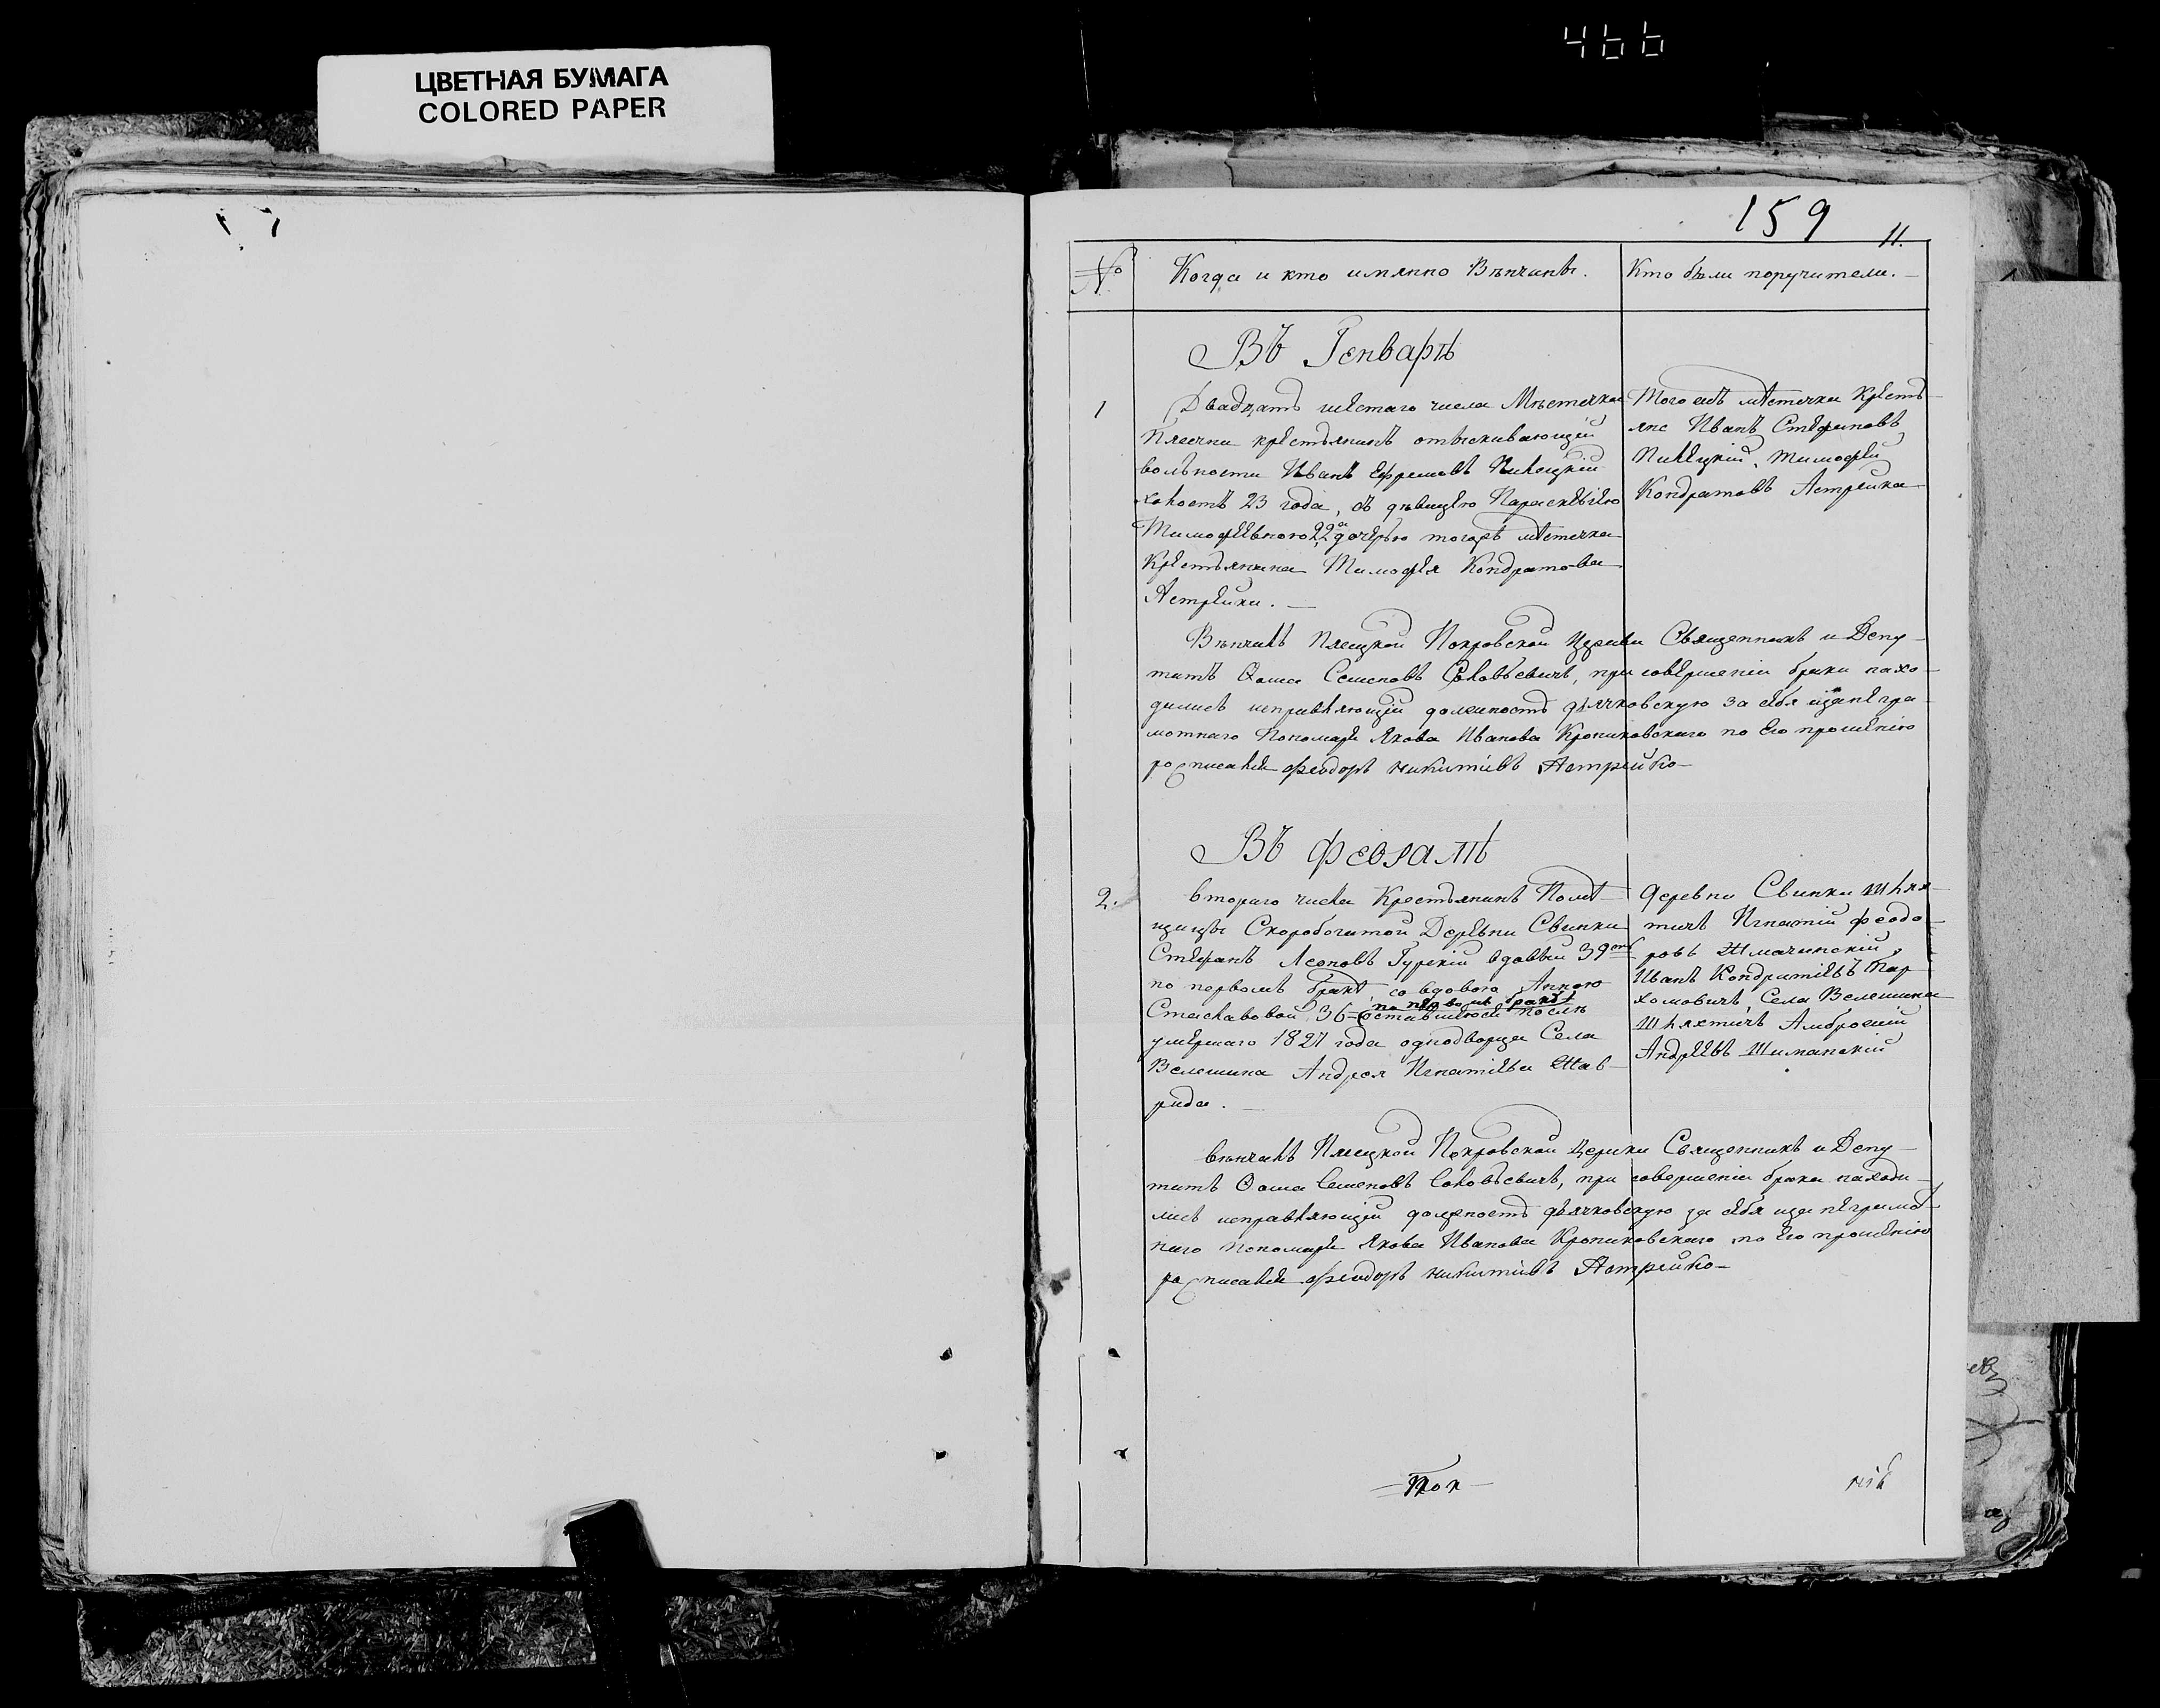 466
ЦВЕТНАЯ БУМАГА
COLORED PAPER
159
11.
№
Когда и кто имянно Вѣнчаны.
Кто были поручители.
Въ Генварѣ
1
Двадцать шестаго числа Мѣстечка
крестьянинъ отыскивающій
вольности Иванъ Ефремовъ
холостъ 23 года, съ дѣвицею Параскевіею
Тимофеевною 22 дочерью тогожъ мѣстечка
Крестьянина Тимофея Кондратова
Астрейки. —
Тогожъ мѣстечка Кресть-
яне Иванъ Стефановъ
Тимофей
Кондратовъ Астрейка
Вѣнчалъ Плещкой Покровской Церкви Священникъ и Депу-
татъ Ѳома Семеновъ Соловьевичъ, при совершеніи брака нахо-
дились исправляющій должность дьячковскую за себя и за негра-
мотнаго Пономаря Якова Иванова Крониковскаго по Его прошенію
росписался Феодоръ Никитіевъ Астрейко
Въ февралѣ
2.
втораго числа Крестьянинъ Помѣ-
щицы Скоробогатой Деревни Свинки
Стефанъ Леоновъ Гурскій вдовый 39
по первомъ бракѣ, со вдовою Анною
по первомъ бракѣ
36 оставшеюся послѣ
умершаго 1827 года однодворца Села
Велешина Андрея Игнатіева Шав-
рида. —
деревни Свинки Шлях-
тичъ Игнатій Феодо-
ровъ
Иванъ Кондратіевъ Пар-
хомовичъ Села Велешина
Шляхтичъ Амбросій
Андреевъ Шиманскій
вѣнчалъ Плещкой Покровской Церкви Священникъ и Депу-
татъ Ѳома Семеновъ Соловьевичъ, при совершеніи брака находи-
лись исправляющій должность дьячковскую за себя и за неграмот-
наго Пономаря Якова Иванова Крониковскаго по Его прошенію
росписался Феодоръ Никитіевъ Астрейко